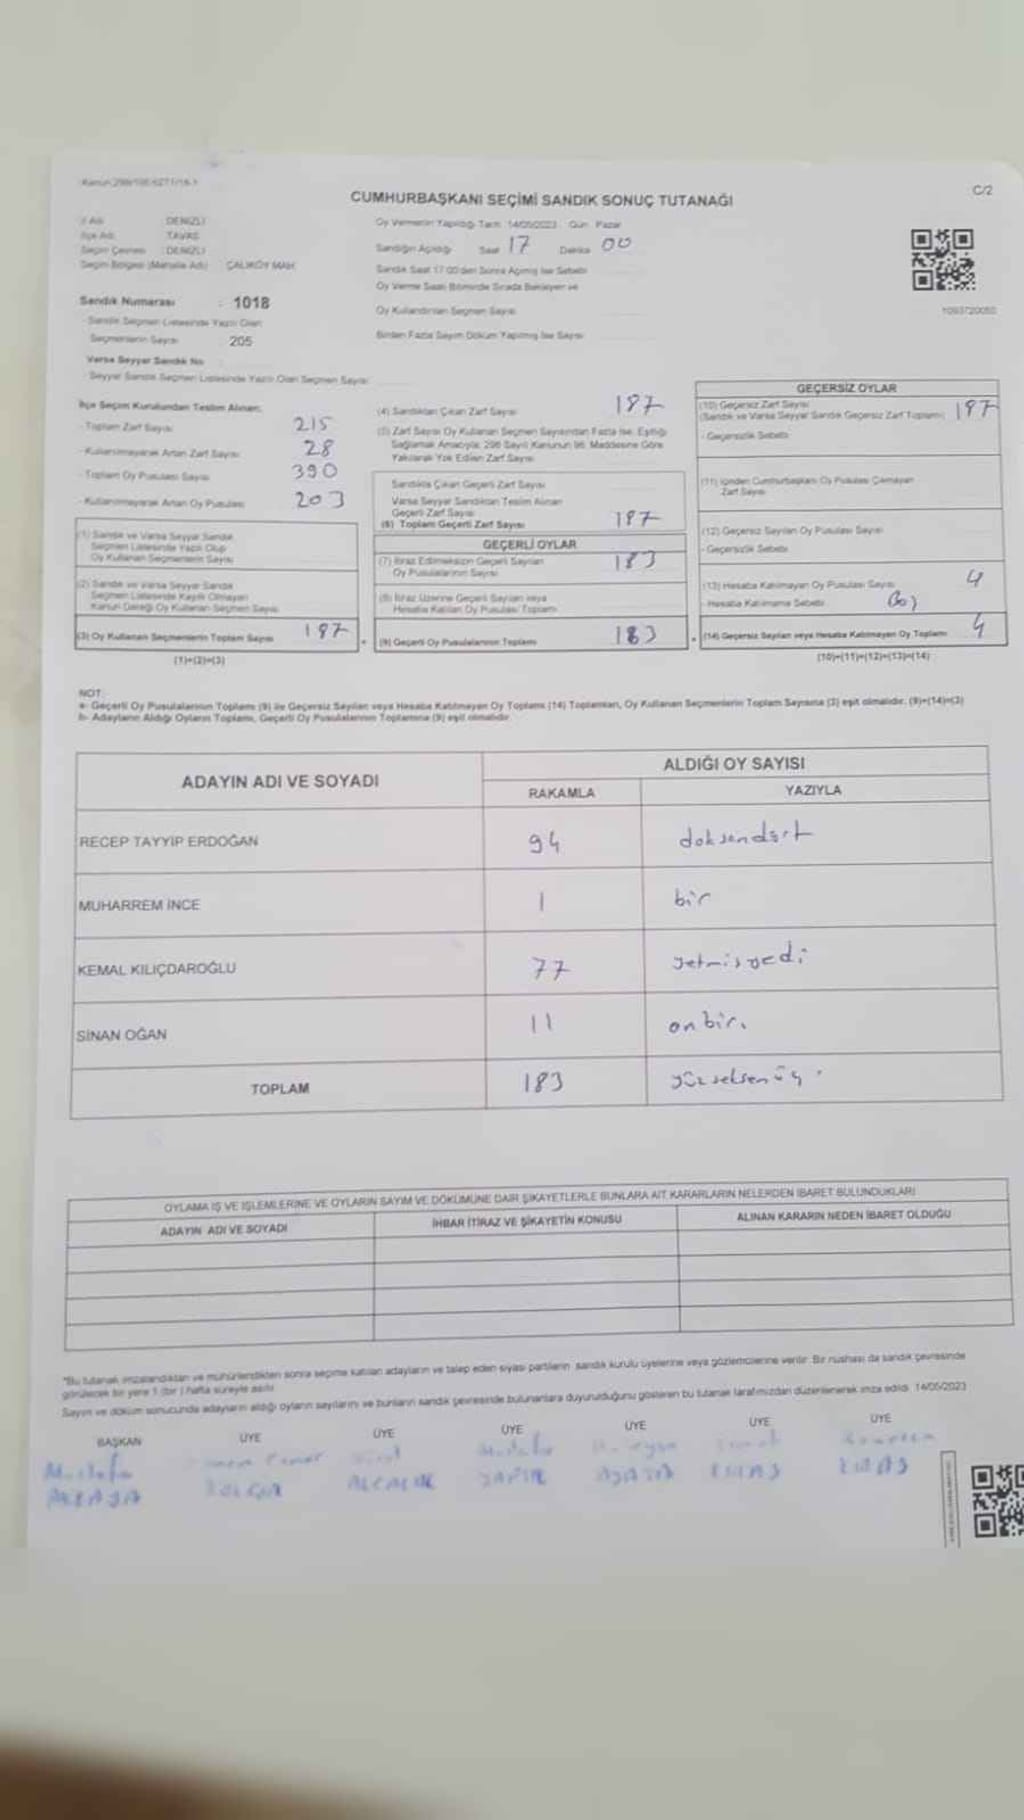 C/2
CUMHURBAŞKANI SEÇİMİ SANDIK SONUÇ TUTANAĞI
İl Adı : DENİZLİ
İlçe Adı : TAVAS
Seçim Çevresi : DENİZLİ
Seçim Bölgesi (Mahalle Adı) : ÇALIKÖY MAH.
Sandık Numarası : 1018
- Sandık Seçmen Listesinde Yazılı Olan
Seçmenlerin Sayısı 205
Varsa Seyyar Sandık No
- Seyyar Sandık Seçmen Listesinde Yazılı Olan Seçmen Sayısı
Oy Vermenin Yapıldığı Tarih 14/05/2023 Gün Pazar
Sandığın Açıldığı Saat 17 Dakika 00
Sandık Saat 17:00'den Sonra Açılmış İse Sebebi
Oy Verme Saati Bitiminde Sırada Bekleyen ve
Oy Kullandırılan Seçmen Sayısı
Birden Fazla Sayım Döküm Yapılmış İse Sayısı
İlçe Seçim Kurulundan Teslim Alınan;
- Toplam Zarf Sayısı 215
- Kullanılmayarak Artan Zarf Sayısı 28
- Toplam Oy Pusulası Sayısı 390
- Kullanılmayarak Artan Oy Pusulası 203
(1) Sandık ve Varsa Seyyar Sandık
Seçmen Listesinde Yazılı Olup
Oy Kullanan Seçmenlerin Sayısı
(2) Sandık ve Varsa Seyyar Sandık
Seçmen Listesinde Kayıtlı Olmayan
Kanun Gereği Oy Kullanan Seçmen Sayısı
(3) Oy Kullanan Seçmenlerin Toplam Sayısı 187
(1)+(2)=(3)
(4) Sandıktan Çıkan Zarf Sayısı 187
(5) Zarf Sayısı Oy Kullanan Seçmen Sayısından Fazla İse, Eşitliği
Sağlamak Amacıyla, 298 Sayılı Kanunun 98. Maddesine Göre
Yakılarak Yok Edilen Zarf Sayısı
Sandıkta Çıkan Geçerli Zarf Sayısı
Varsa Seyyar Sandıktan Teslim Alınan
Geçerli Zarf Sayısı
(6) Toplam Geçerli Zarf Sayısı 187
GEÇERLİ OYLAR
(7) İtiraz Edilmeksizin Geçerli Sayılan
Oy Pusulalarının Sayısı 183
(8) İtiraz Üzerine Geçerli Sayılan veya
Hesaba Katılan Oy Pusulası Toplamı
(9) Geçerli Oy Pusulalarının Toplamı 183
GEÇERSİZ OYLAR
(10) Geçersiz Zarf Sayısı
(Sandık ve Varsa Seyyar Sandık Geçersiz Zarf Toplamı) 187
- Geçersizlik Sebebi
(11) İçinden Cumhurbaşkanı Oy Pusulası Çıkmayan
Zarf Sayısı
(12) Geçersiz Sayılan Oy Pusulası Sayısı
- Geçersizlik Sebebi
(13) Hesaba Katılmayan Oy Pusulası Sayısı 4
- Hesaba Katılmama Sebebi Boş
(14) Geçersiz Sayılan veya Hesaba Katılmayan Oy Toplamı 4
(10)+(11)+(12)+(13)=(14)
NOT:
a- Geçerli Oy Pusulalarının Toplamı (9) ile Geçersiz Sayılan veya Hesaba Katılmayan Oy Toplamı (14) Toplamları, Oy Kullanan Seçmenlerin Toplam Sayısına (3) eşit olmalıdır. (9)+(14)=(3)
b- Adayların Aldığı Oyların Toplamı, Geçerli Oy Pusulalarının Toplamına (9) eşit olmalıdır.
ADAYIN ADI VE SOYADI
ALDIĞI OY SAYISI
RAKAMLA YAZIYLA
RECEP TAYYİP ERDOĞAN 94 doksandört
MUHARREM İNCE 1 bir
KEMAL KILIÇDAROĞLU 77 yetmişyedi
SİNAN OĞAN 11 onbir.
TOPLAM 183 yüzseksenüç.
OYLAMA İŞ VE İŞLEMLERİNE VE OYLARIN SAYIM VE DÖKÜMÜNE DAİR ŞİKAYETLERLE BUNLARA AİT KARARLARIN NELERDEN İBARET BULUNDUKLARI
ADAYIN ADI VE SOYADI İHBAR İTİRAZ VE ŞİKAYETİN KONUSU ALINAN KARARIN NEDEN İBARET OLDUĞU
*Bu tutanak imzalandıktan ve mühürlendikten sonra seçime katılan adayların ve talep eden siyasi partilerin sandık kurulu üyelerine veya gözlemcilerine verilir. Bir nüshası da sandık çevresinde
görülecek bir yere 1 (bir) hafta süreyle asılır.
Sayım ve döküm sonucunda adayların aldığı oyların sayılarını ve bunların sandık çevresinde bulunanlara duyurulduğunu gösteren bu tutanak tarafımızdan düzenlenerek imza edildi. 14/05/2023
BAŞKAN ÜYE ÜYE ÜYE ÜYE ÜYE ÜYE
Mustafa